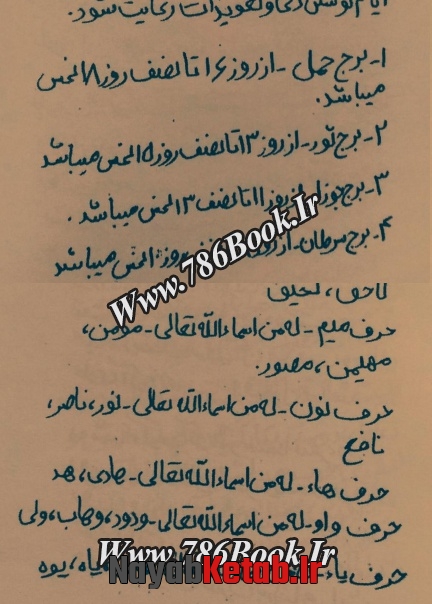 ایام نوشتن دعا و تعویذات رعایت شود.
۱- برج حمل - از روز ۱۶ تا نصف روز ۱۸ نحس
میباشد.
۲- برج ثور - از روز ۱۳ تا نصف روز ۱۵ نحس میباشد
۳- برج جوزا از روز ۱۱ تا نصف ۱۳ نحس میباشد.
۴- برج سرطان - از روز نصف روز نحس میباشد
حرف میم - له من اسماء الله تعالی - مؤمن،
مهیمن، مصور.
حرف نون - له من اسماء الله تعالی - نور، ناصر،
نافع
حرف هاء - له من اسماء الله تعالی - هادی، هد
حرف واو - له من اسماء الله تعالی - ودود، وهاب، ولی
حرف یاء یاه، یوه
Www.786Book.Ir
Www.786Book.Ir
NayabKetab.Ir